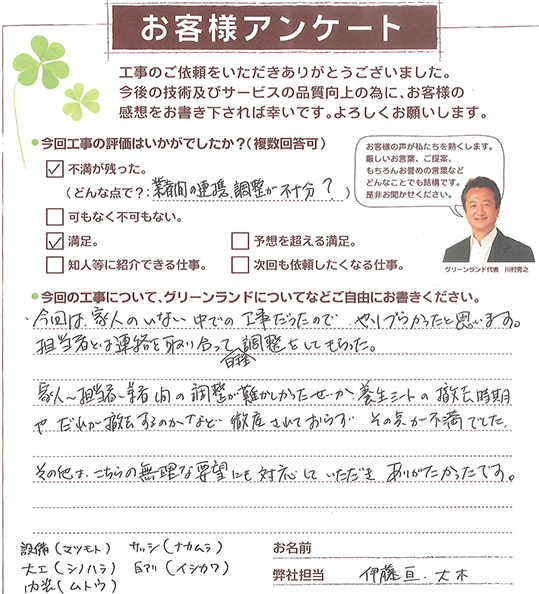 お客様アンケート
工事のご依頼をいただきありがとうございました。
今後の技術及びサービスの品質向上の為に、お客様の
感想をお書き下されば幸いです。よろしくお願いします。
●今回工事の評価はいかがでしたか?(複数回答可)
☑ 不満が残った。
(どんな点で?:業者間の連携、調整が不十分?)
□ 可もなく不可もない。
☑ 満足。 □ 予想を超える満足。
□ 知人等に紹介できる仕事。 □ 次回も依頼したくなる仕事。
お客様の声が私たちを熱くします。
厳しいお言葉、ご提案、
もちろんお誉めの言葉など
どんなことでも結構です。
是非お聞かせください。
グリーンランド代表 川村秀之
●今回の工事について、グリーンランドについてなどご自由にお書きください。
・今回は家人のいない中での工事だったので、やりづらかったと思います。
担当者とは連絡を取り合って日程調整をしてもらった。
家人〜担当者〜業者間の調整が難しかったせいか、養生シートの撤去時期
や、だれが撤去するのかなど徹底されておらず、その点が不満でした。
その他は、こちらの無理な要望にも対応していただき、ありがたかったです。
設備(マツモト) サッシ(ナカムラ)
大工(シノハラ) 白アリ(イシカワ)
内装(ムトウ)
お名前
弊社担当 伊藤亘・大木